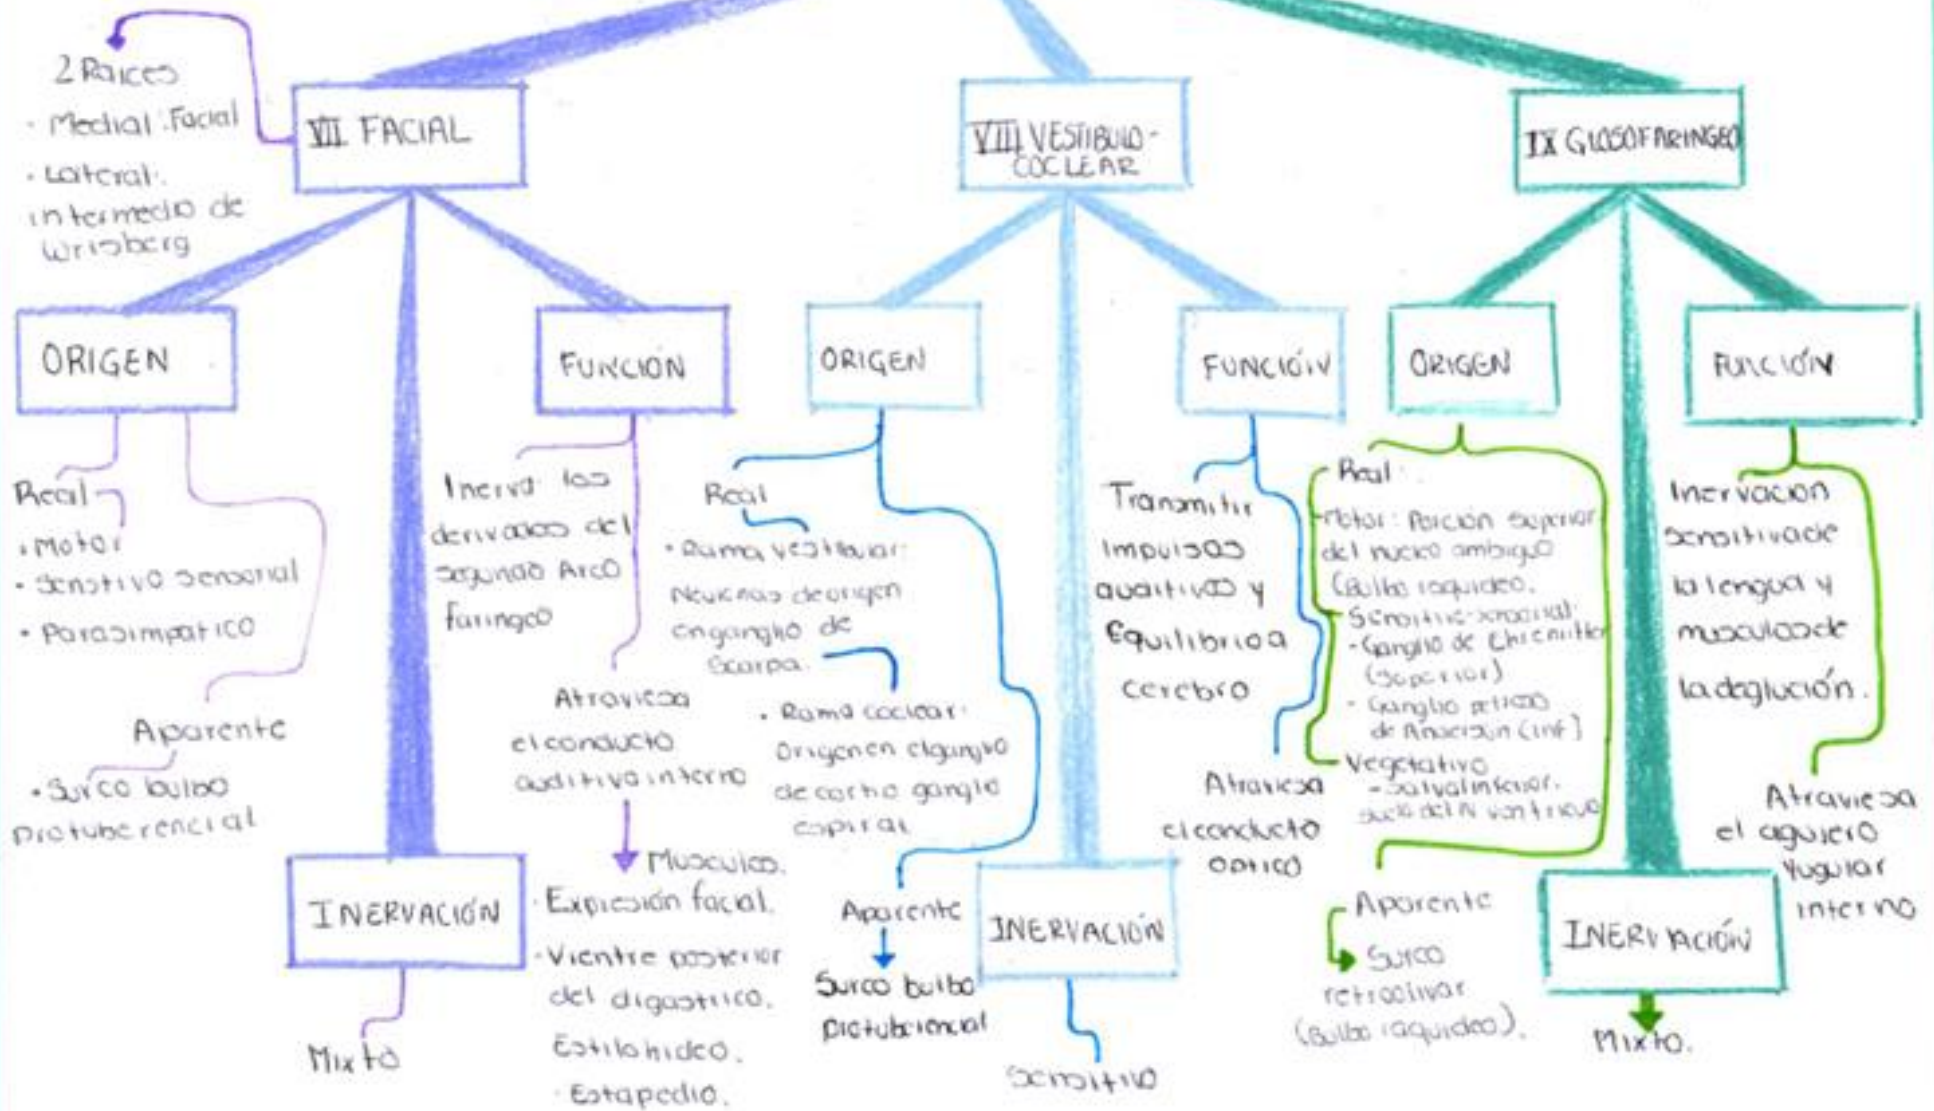 2 Raices
• Medial: Facial
• Lateral:
intermedio de
Wrisberg
VII FACIAL
ORIGEN
Real
• Motor
• Sensitivo sensorial
• Parasimpatico
Aparente
• Surco bulbo
protuberencial
INERVACIÓN
Mixto
FUNCIÓN
Inerva los
derivados del
segundo Arco
faringeo
Atraviesa
el conducto
auditivo interno
Musculos.
• Expresión facial.
• Vientre posterior
del digastrico.
Estilohideo.
• Estapedio.
VIII VESTIBULO-
COCLEAR
ORIGEN
Real
• Rama vestibular:
Neuronas de origen
en ganglio de
Scarpa.
• Rama coclear:
Origen en el ganglio
de corti o ganglio
espiral
Aparente
Surco bulbo
protuberencial
INERVACIÓN
Sensitivo
FUNCIÓN
Transmitir
impulsos
auditivos y
Equilibrio a
cerebro
Atraviesa
el conducto
optico
IX GLOSOFARINGEO
ORIGEN
Real:
Motor: Porción superior
del nucleo ambiguo
(Bulbo raquideo.
Sensitivo-sensorial:
- Ganglio de
(superior)
- Ganglio petroso
de (inf)
Vegetativo
- Salval inferior.
suelo del IV ventriculo
Aparente
Surco
retroolivar
(Bulbo raquideo).
INERVACIÓN
Mixto.
FUNCIÓN
Inervacion
sensitiva de
la lengua y
musculos de
la deglución.
Atraviesa
el agujero
Yugular
interno